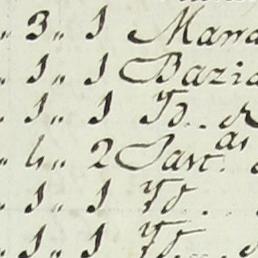 „ 3 „ 1 Mana
„ 1 „ 1 Bazia
„ 1 „ 1 Yd..
„ 4 „ 2 Sart.as
„ 1 „ 1 Yd.
„ 1 „ 1 Yd...